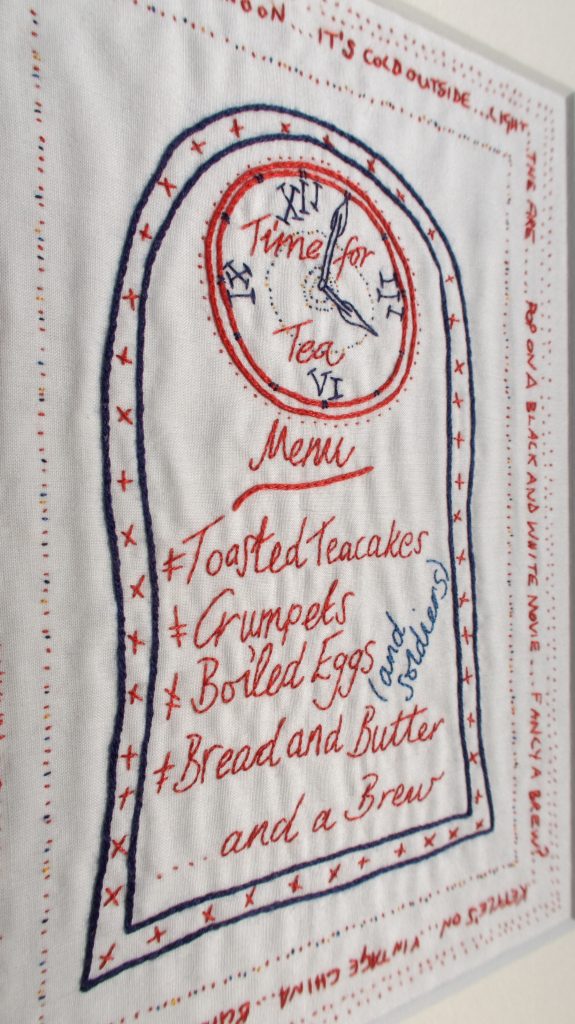 IT'S COLD OUTSIDE... LIGHT
THE FIRE ... POP ON A BLACK AND WHITE MOVIE... FANCY A BREW?
KETTLE'S ON... VINTAGE CHINA...
XII
Time for
IX III
Tea
VI
Menu
Toasted Teacakes
Crumpets
Boiled Eggs
(and
soldiers)
Bread and Butter
.... and a Brew